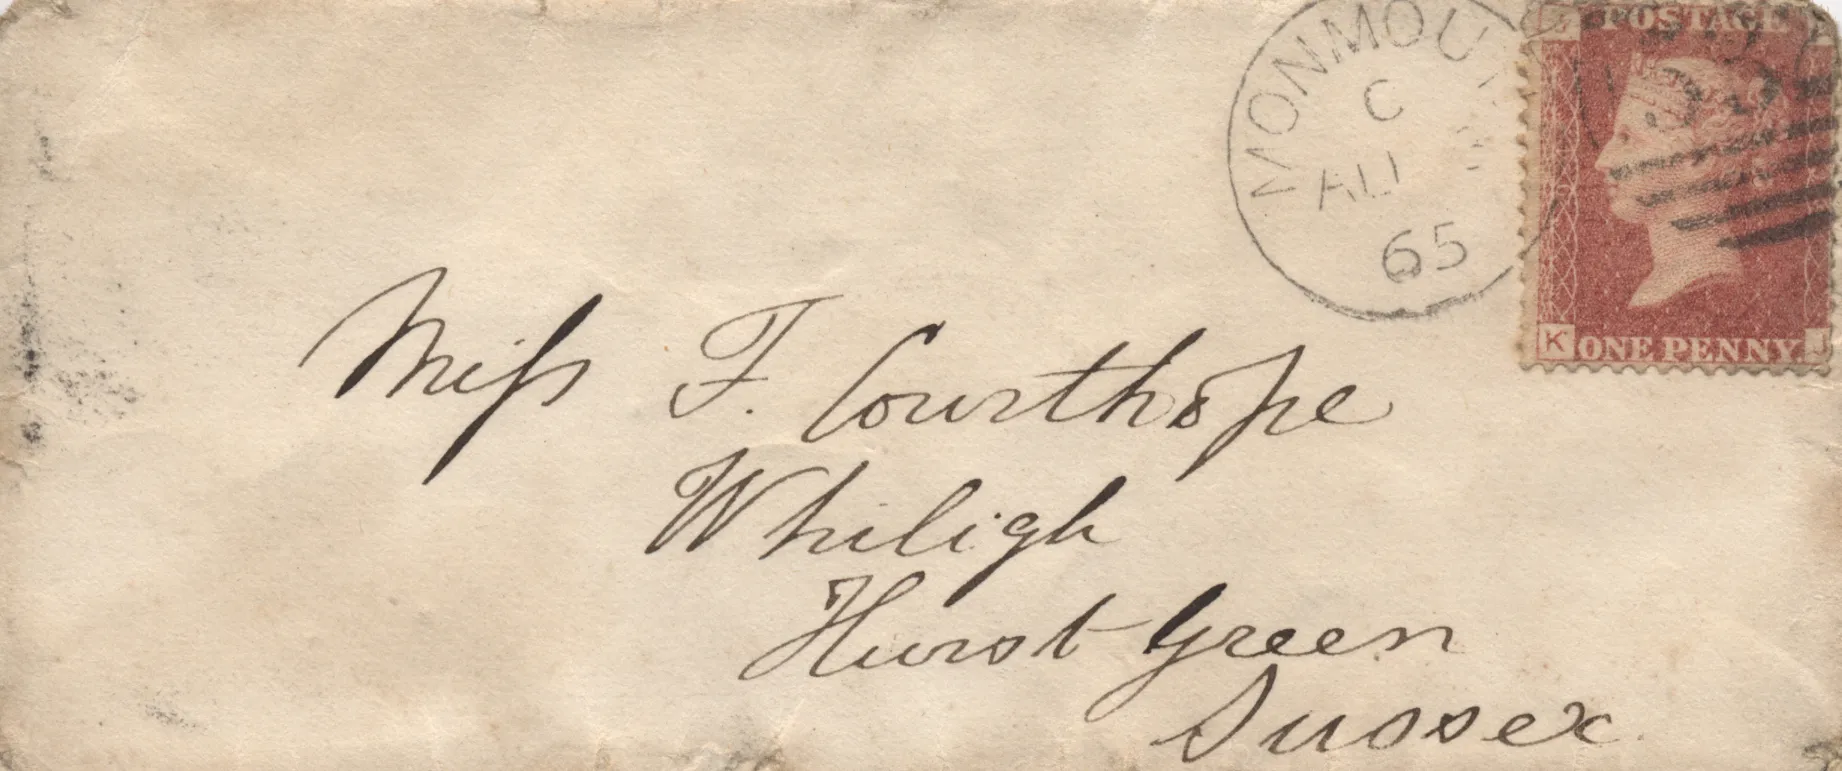 MONMOUTH
C
AU
65
POSTAGE
K ONE PENNY J
Miss F. Courthope
Whiligh
Hurst Green
Sussex